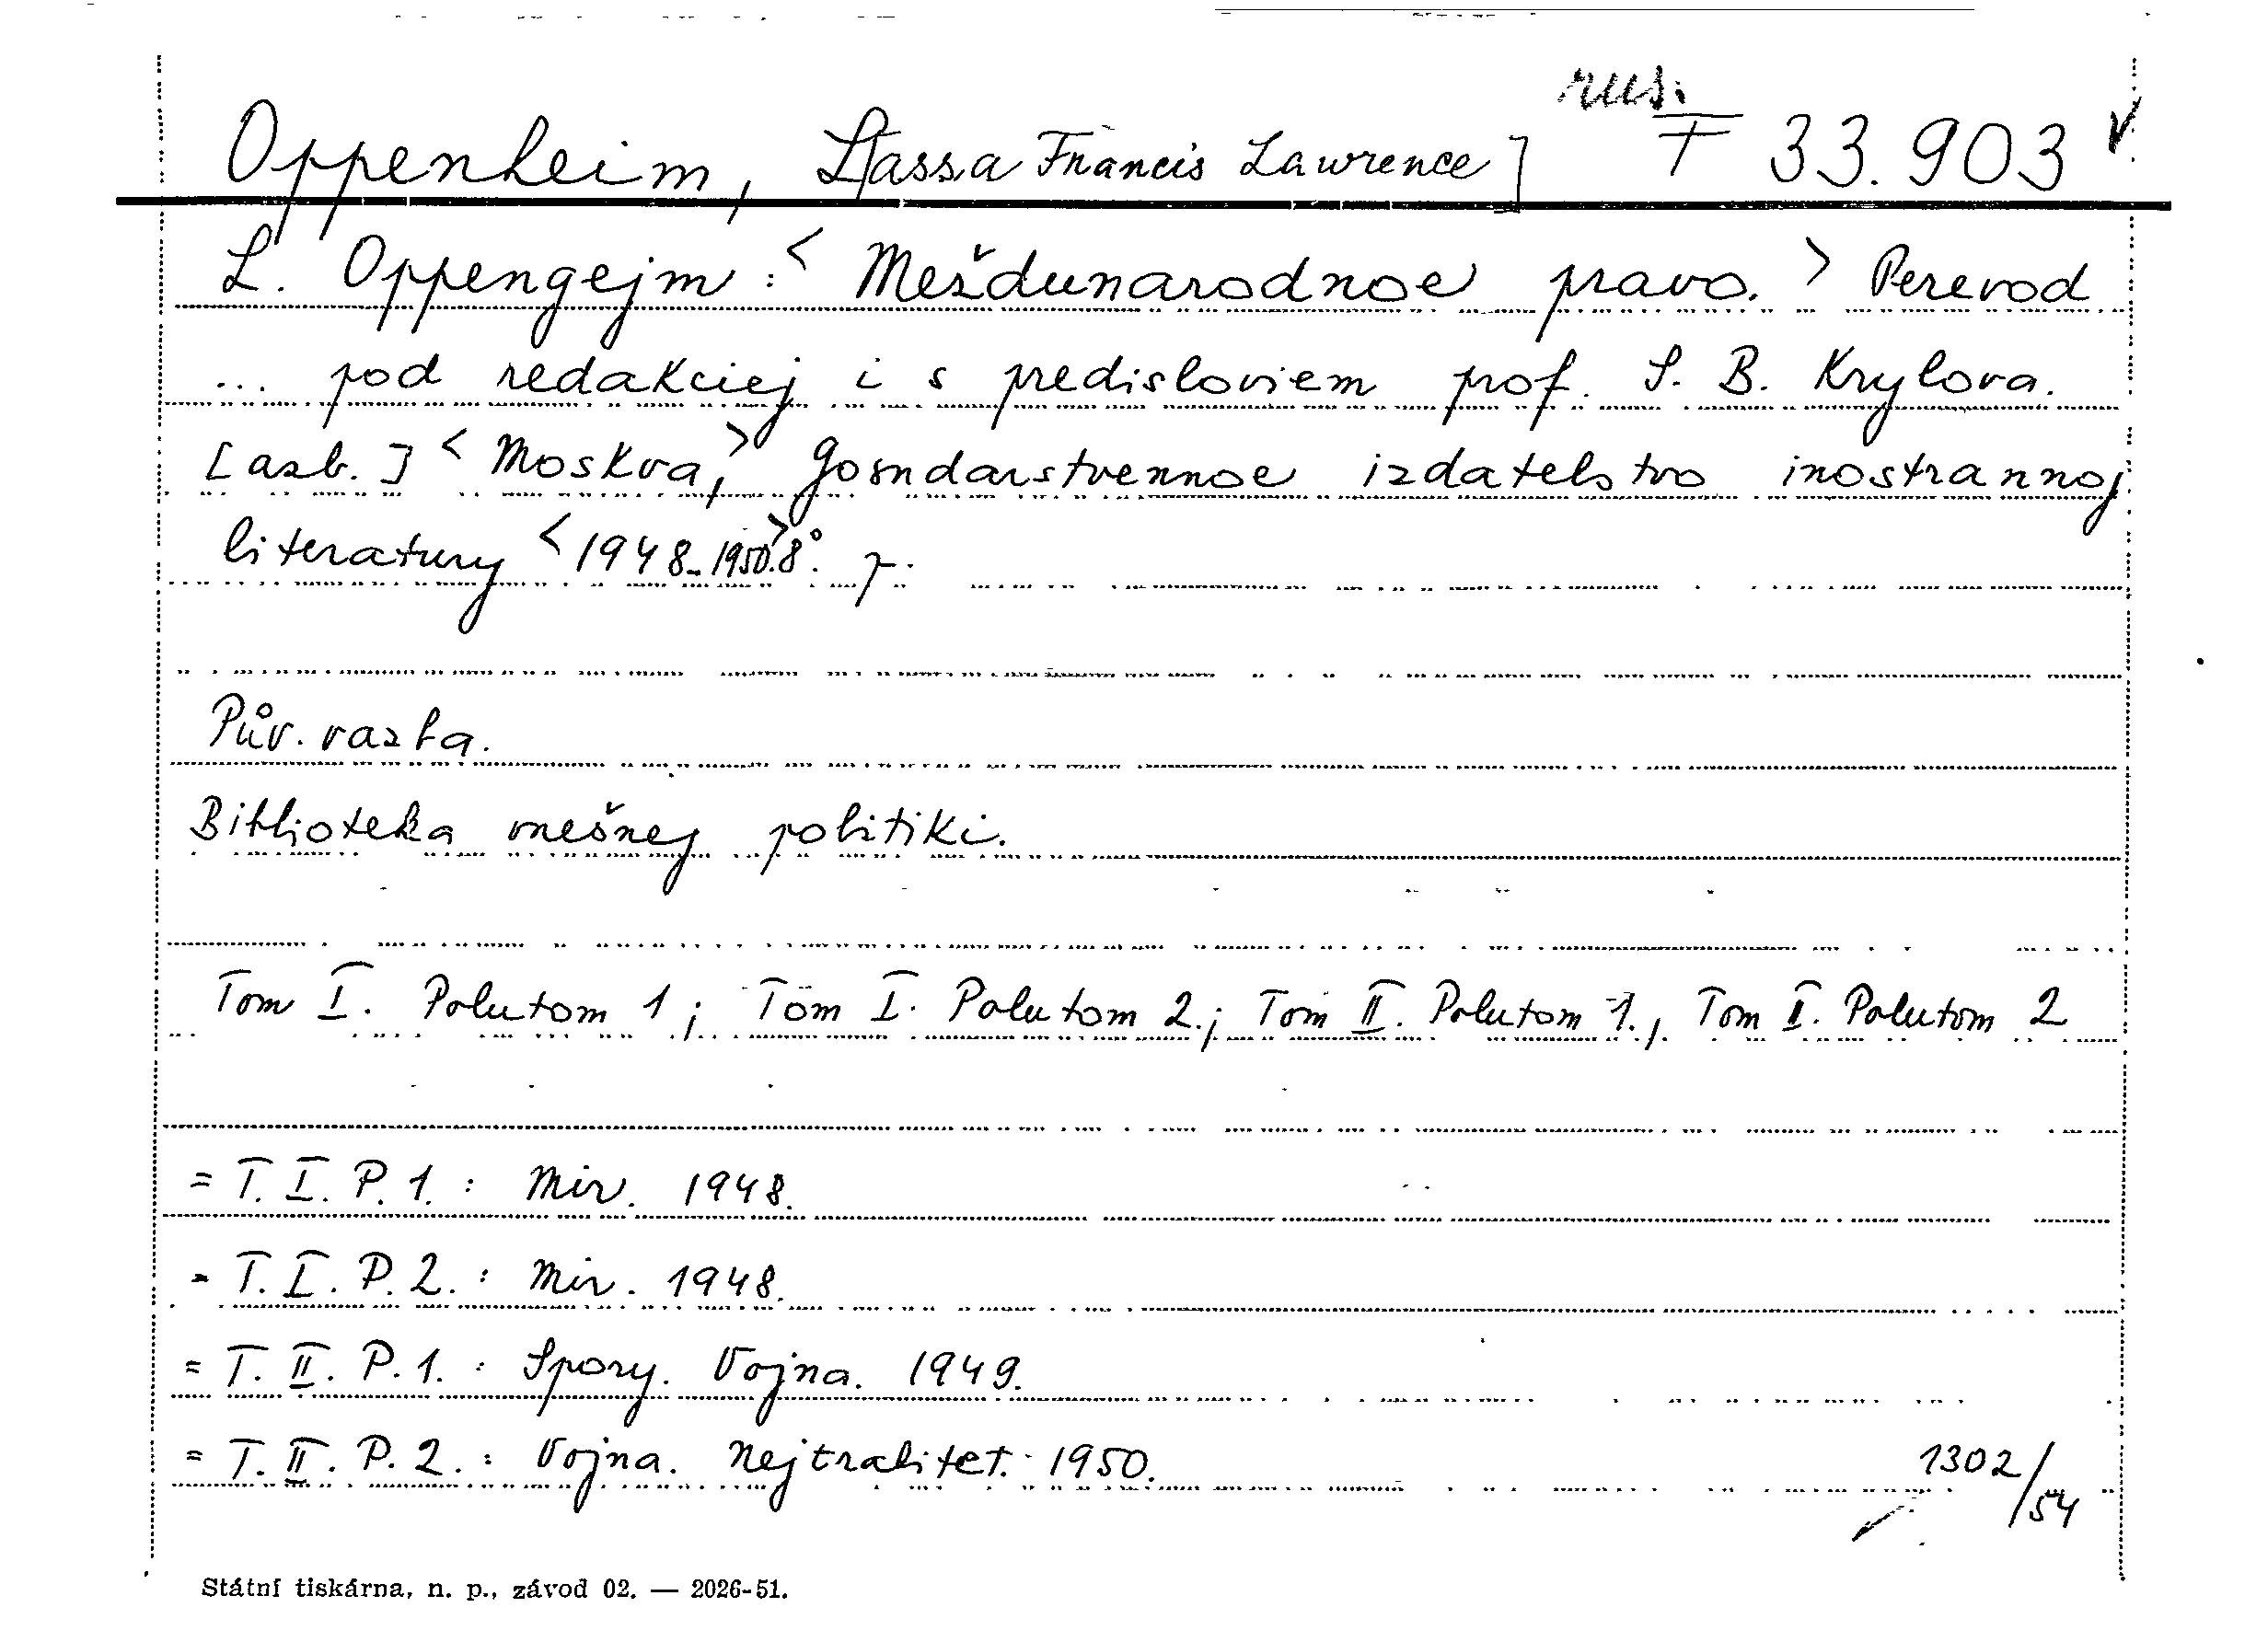 rus.
Oppenheim, L[assa Francis Lawrence] F 33.903
L. Oppengejm: < Mešdunarodnoe pravo. > Perevod
... pod redakciej i s predisloviem prof. S. B. Krylova.
[azb.] < Moskva, > Gosudarstvennoe izdatelstvo inostrannoj
literatury < 1948-1950. > 8°. p.
Pův. vazba.
Biblioteka vnešnej politiki.
Tom I. Polutom 1; Tom I. Polutom 2.; Tom II. Polutom 1., Tom II. Polutom 2
= T. I. P. 1. : Mir. 1948.
= T. I. P. 2. : Mir. 1948.
= T. II. P. 1. : Spory. Vojna. 1949.
= T. II. P. 2. : Vojna. Nejtralitet. 1950.
1302/54
Státní tiskárna, n. p., závod 02. — 2026-51.